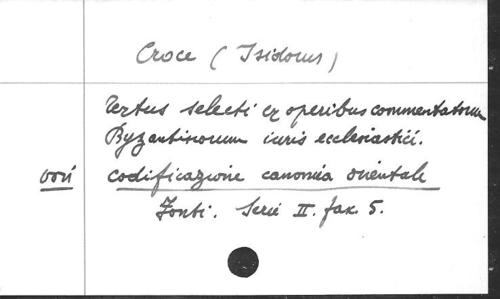 Croce (Isidorus)
Textus selecti ex operibus commentatorum
Byzantinorum iuris ecclesiastici.
voir codificazione canonica orientale
Fonti. Serie II. fasc. 5.